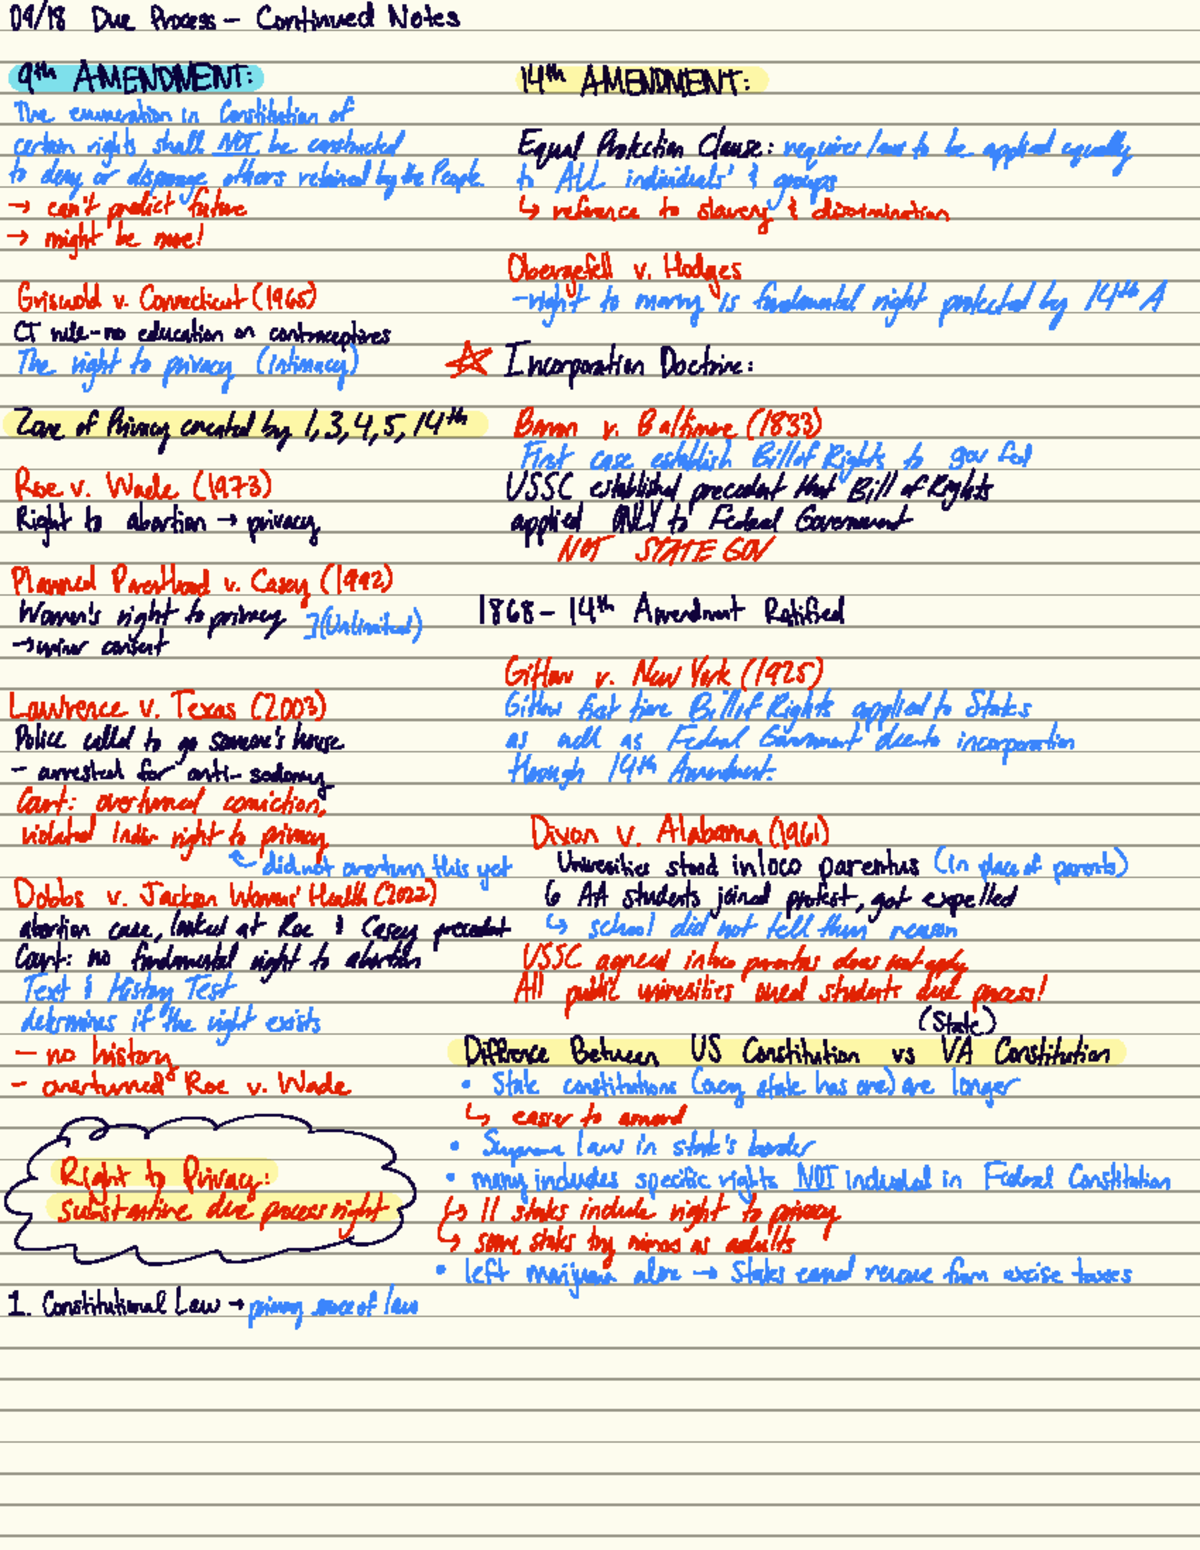 09/18 Due Process - Continued Notes
9th AMENDMENT:
The enumeration in Constitution of
certain rights shall NOT be constructed
to deny or disparage others retained by the People.
→ can't predict future
→ might be more!
Griswold v. Connecticut (1965)
CT rule - no education on contraceptives
The right to privacy (Intimacy)
Zone of Privacy created by 1, 3, 4, 5, 14th
Roe v. Wade (1973)
Right to abortion → privacy
Planned Parenthood v. Casey (1992)
Women's right to privacy ](Unlimited)
→ minor consent
Lawrence v. Texas (2003)
Police called to go someone's house
- arrested for anti-sodomy
Court: overturned conviction,
violated their right to privacy
← did not overturn this yet
Dobbs v. Jackson Womens' Health (2022)
abortion case, looked at Roe & Casey precedent
Court: no fundamental right to abortion
Text & History Test
determines if the right exists
- no history
- overturned Roe v. Wade
Right to Privacy:
substantive due process right
1. Constitutional Law → primary source of law
14th AMENDMENT:
Equal Protection Clause: requires laws to be applied equally
to ALL individuals' & groups
↳ reference to slavery & discrimination
Obergefell v. Hodges
- right to marry is fundamental right protected by 14th A
☆ Incorporation Doctrine:
Barron v. Baltimore (1833)
First case establish Bill of Rights to gov fed
USSC established precedent that Bill of Rights
applied ONLY to Federal Government
NOT STATE GOV
1868 - 14th Amendment Ratified
Gitlow v. New York (1925)
Gitlow first time Bill of Rights applied to States
as well as Federal Government due to incorporation
through 14th Amendment.
Dixon v. Alabama (1961)
Universities stood in loco parentus (in place of parents)
6 AA students joined protest, got expelled
↳ school did not tell them reason
USSC agreed in loco parentus does not apply
All public universities owed students due process!
(State)
Difference Between US Constitution vs VA Constitution
• State constitutions (every state has one) are longer
↳ easier to amend
• Supreme law in state's border
• many includes specific rights NOT included in Federal Constitution
↳ 11 states include right to privacy
↳ some states try minors as adults
• left marijuana alone → States earned revenue from excise taxes